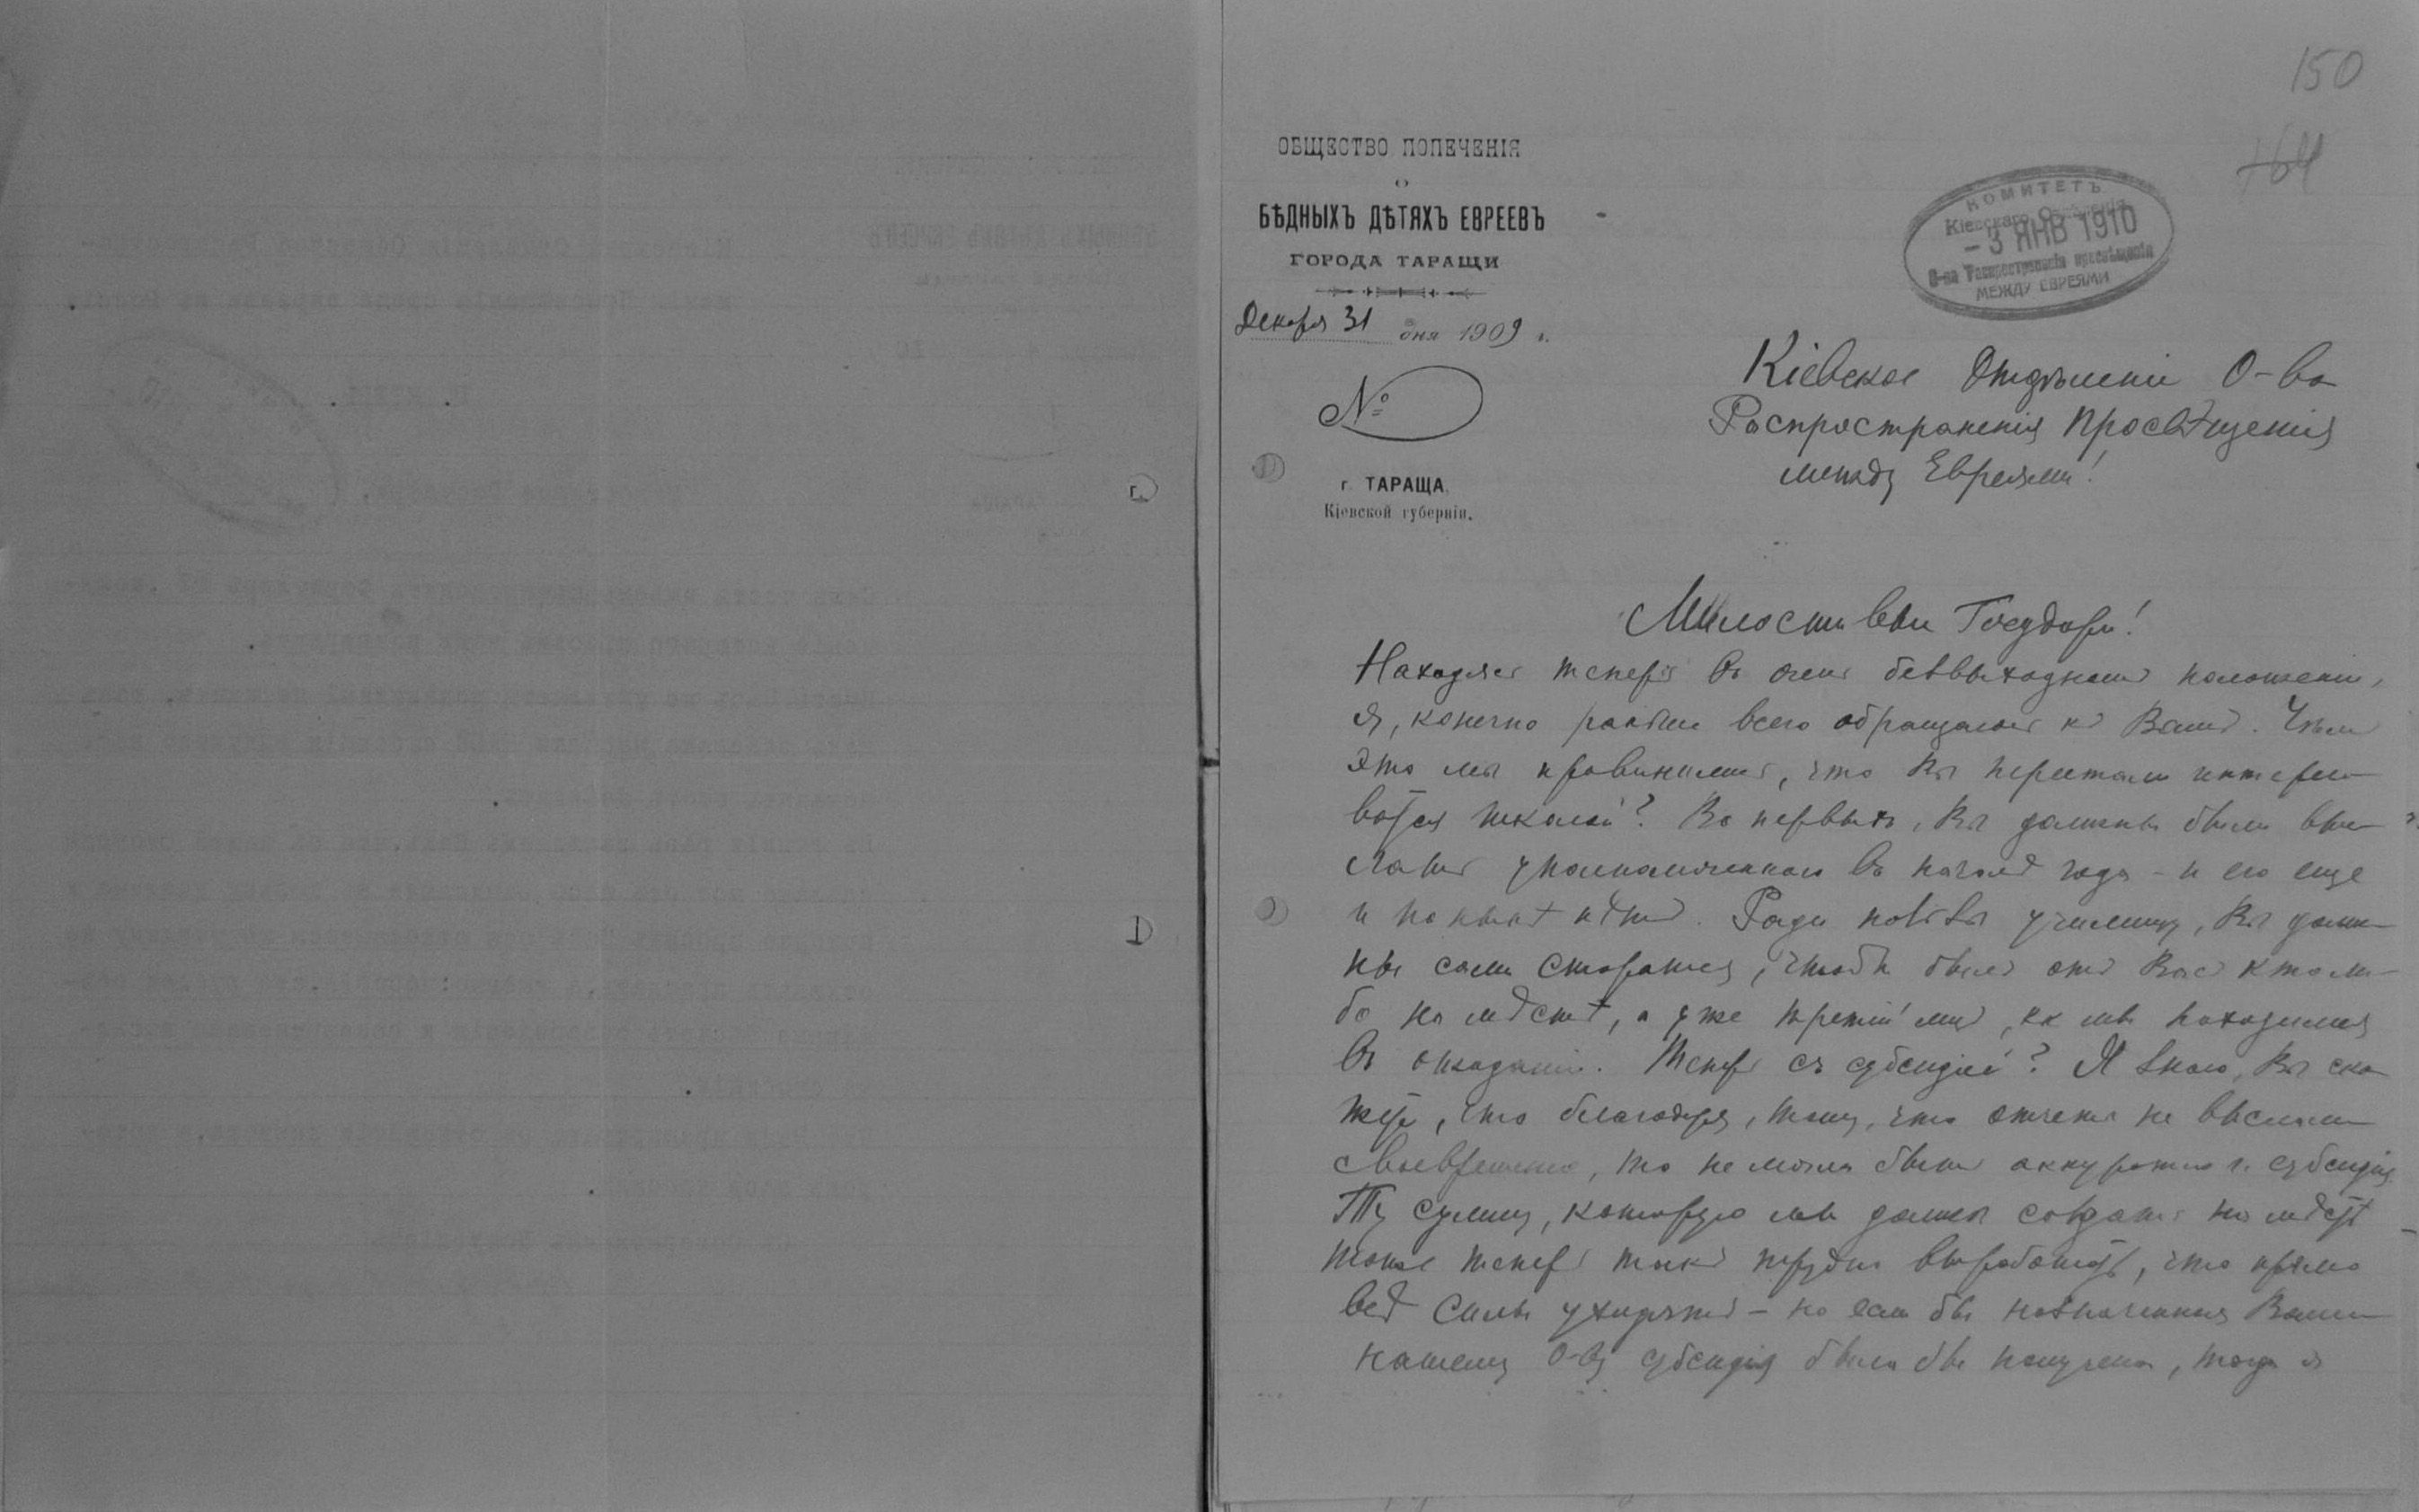 150
164
ОБЩЕСТВО ПОПЕЧЕНІЯ
о
БѢДНЫХЪ ДѢТЯХЪ ЕВРЕЕВЪ
ГОРОДА ТАРАЩИ
КОМИТЕТЪ
Кіевскаго Отдѣленія
- 3 ЯНВ 1910
О-ва Распространенія просвѣщенія
МЕЖДУ ЕВРЕЯМИ
Декабря 31 дня 1909 г.
№
г. ТАРАЩА,
Кіевской губерніи.
Кіевское Отдѣленіе О-ва
Распространенія Просвѣщенія
между Евреями!
Милостивые Государи!
Находясь теперь въ очень безвыходномъ положеніи,
я, конечно раньше всего обращаюсь къ Вамъ. Чѣмъ
это мы провинились, что Вы перестали интересо-
ваться школой? Во первыхъ, Вы должны были вы-
слать уполномоченнаго въ началѣ года - и его еще
и по нынѣ нѣтъ. Ради пользы училищу, Вы долж-
ны сами стараться, чтобы былъ отъ Васъ кто ли-
бо на мѣстѣ, а уже третій мѣс, кк мы находимся
въ ожиданіи. Теперь съ субсидіей? Я знаю, Вы ска-
жете, что благодаря, тому, что отчета не выслали
своевременно, то не могла быть аккуратно и субсидія.
Ту сумму, которую мы должны создать на мѣстѣ
тоже теперь такъ трудно выработать, что прямо
всѣ силы уходятъ - но если бы назначенная Вами
нашему О-ву субсидія была бы получена, тогда я